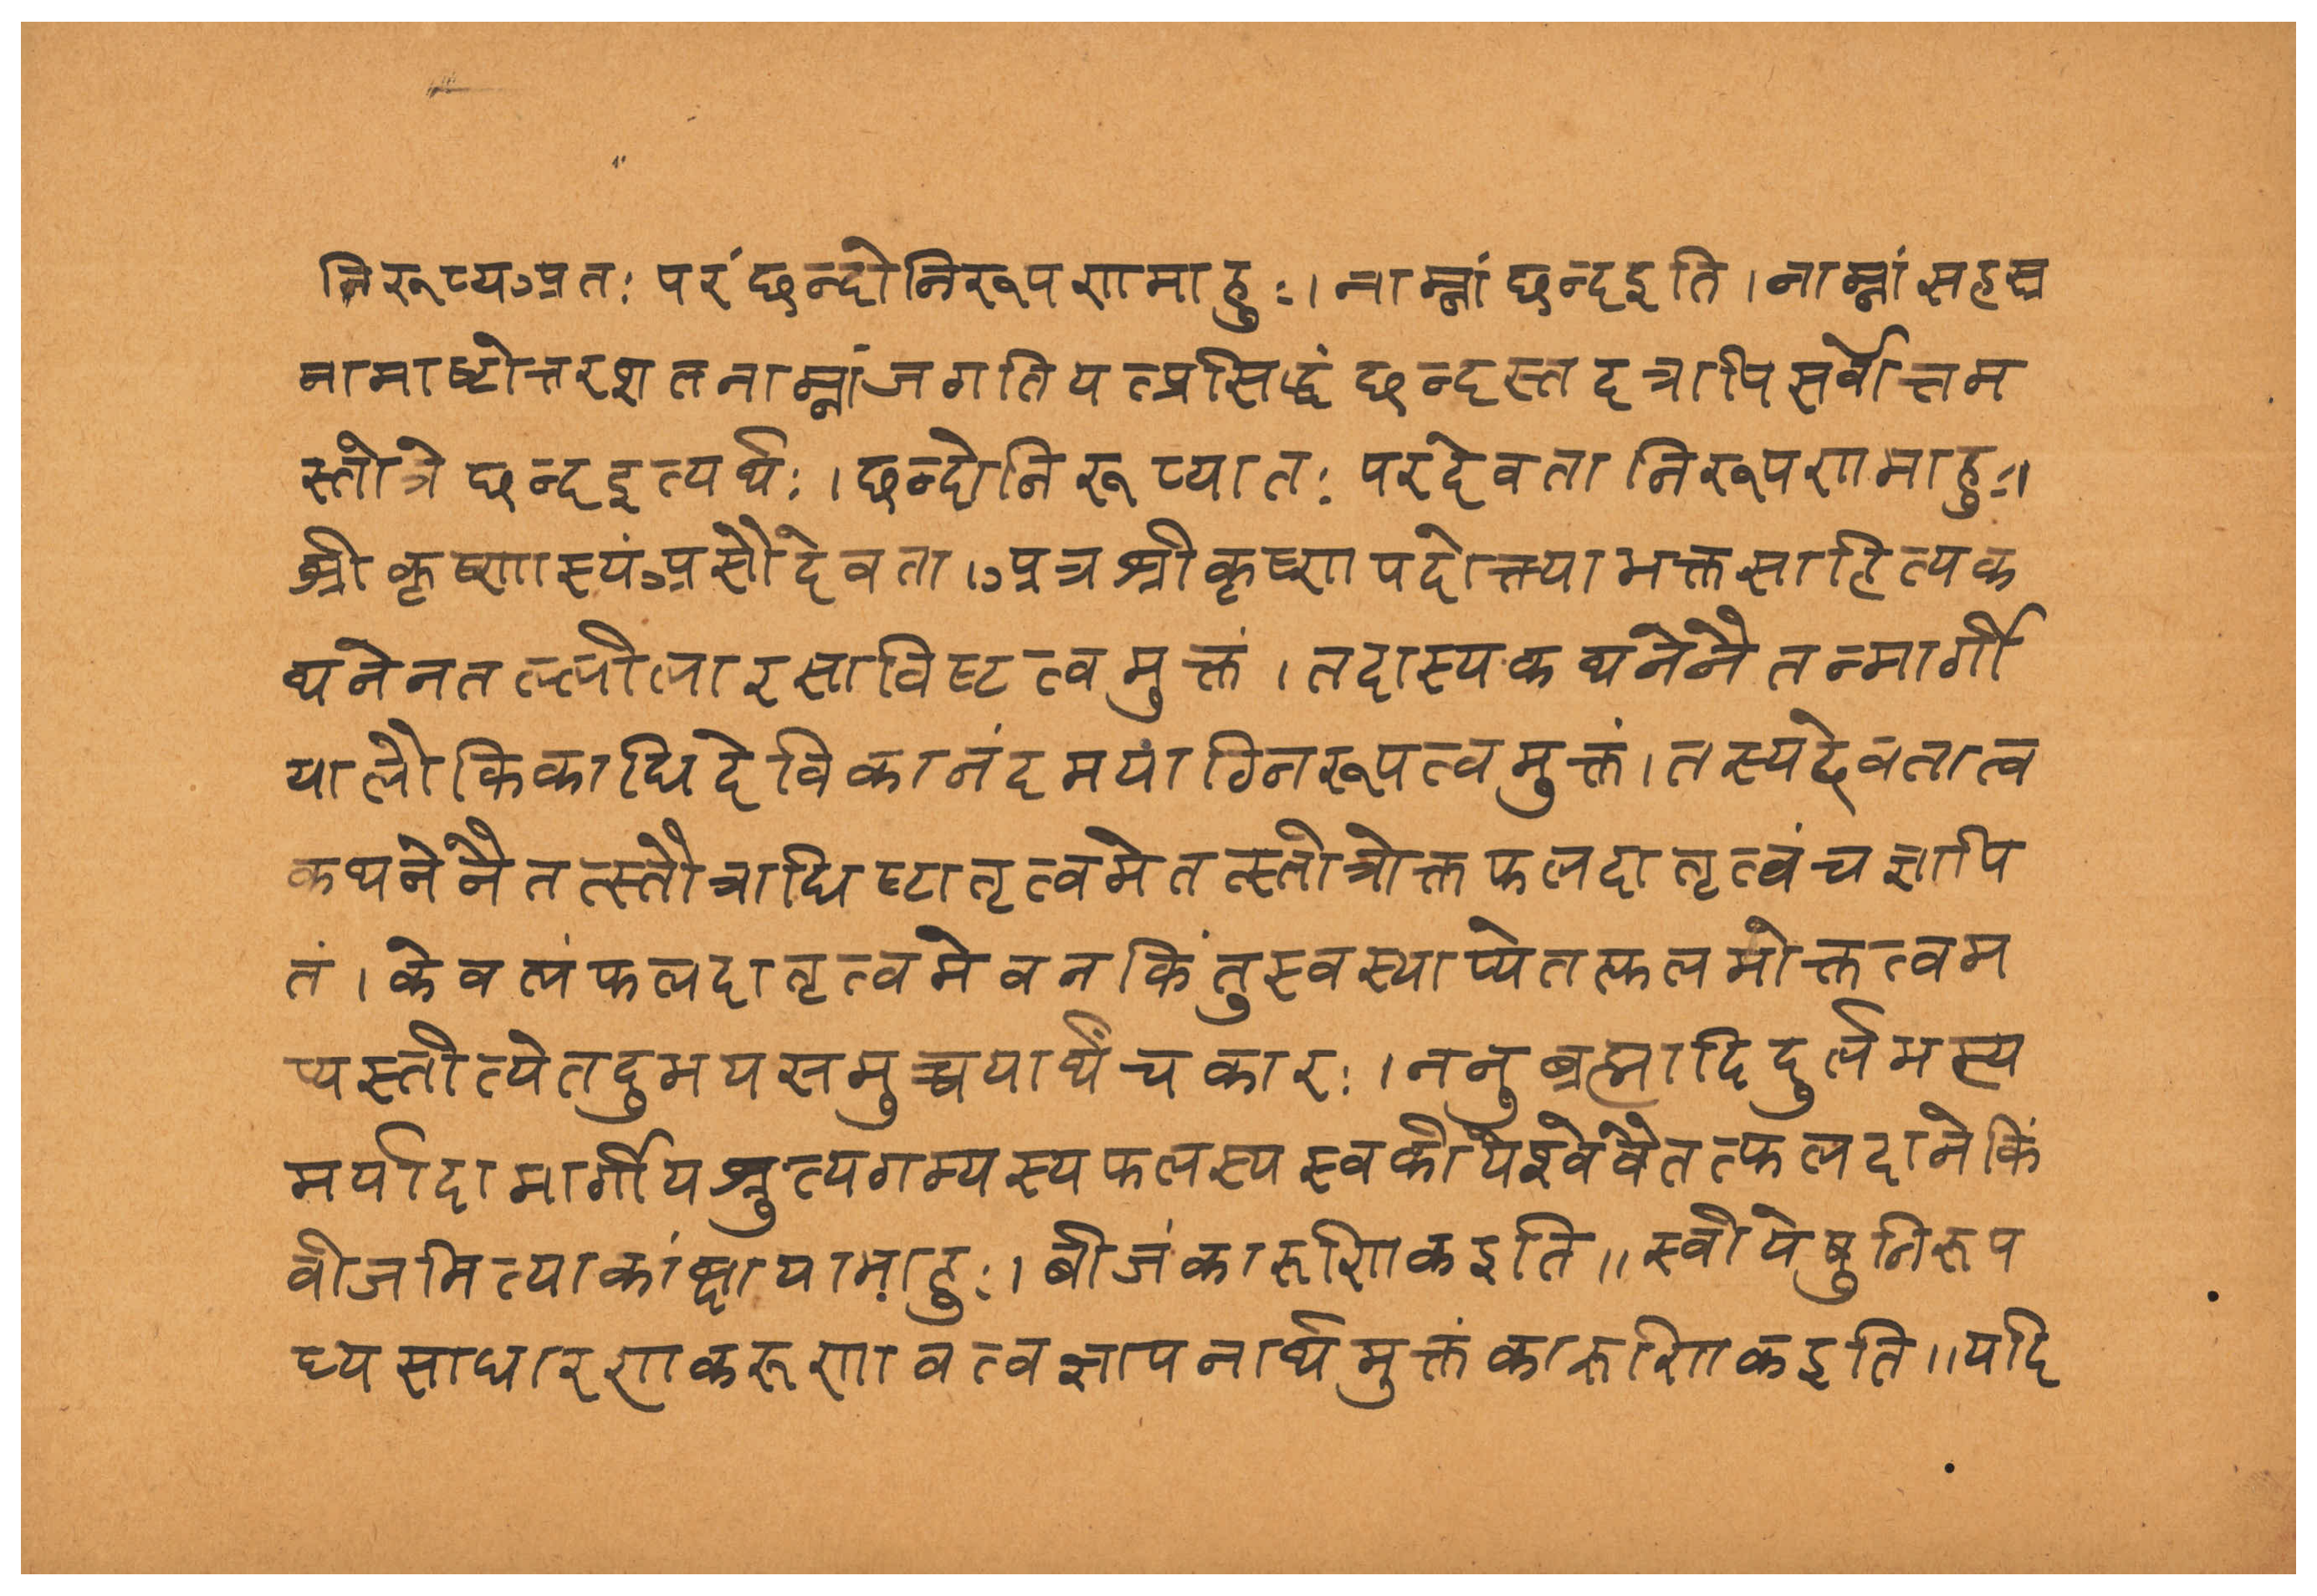 निरूप्य अतः परं छन्दोनिरूपणमाहुः । नाम्नां छन्दइति । नाम्नां सहस्र
नामाष्टोत्तरशतनाम्नां जगति यत्प्रसिद्धं छन्दस्तदत्रापि सर्वोत्तम
स्तोत्रे छन्दइत्यर्थः । छन्दोनिरूप्यातः परदेवतानिरूपणमाहुः ।
श्रीकृष्णास्यं असौ देवता । अत्र श्रीकृष्णपदोक्त्या भक्तसाहित्यक
थनेन तल्लीलारसाविष्टत्वमुक्तं । तदास्यकथनेनैतन्मार्गी
यालौकिकाधिदेविकानंदमयाग्निरूपत्वमुक्तं । तस्य देवतात्व
कथनेनैतत्स्तौत्राधिष्टातृत्वमेतत्स्तोत्रोक्तफलदातृत्वं च ज्ञापि
तं । केवलं फलदातृत्वमेव न किंतु स्वस्याप्येतत्फलभोक्तत्वम
प्यस्तीत्येतदुभयसमुच्चयार्थं चकारः । ननु ब्रह्मादिदुर्लभस्य
मर्यादामार्गीयश्रुत्यगम्यस्य फलस्य स्वकीयेश्वेवैतत्फलदाने किं
वीजमित्याकांक्षायामाहुः । बीजं कारुणिकइति ॥ स्वीयेषु निरूप
ध्यसाधारणकरूणावत्वज्ञापनार्थमुक्तं कारुणिकइति ॥ यदि